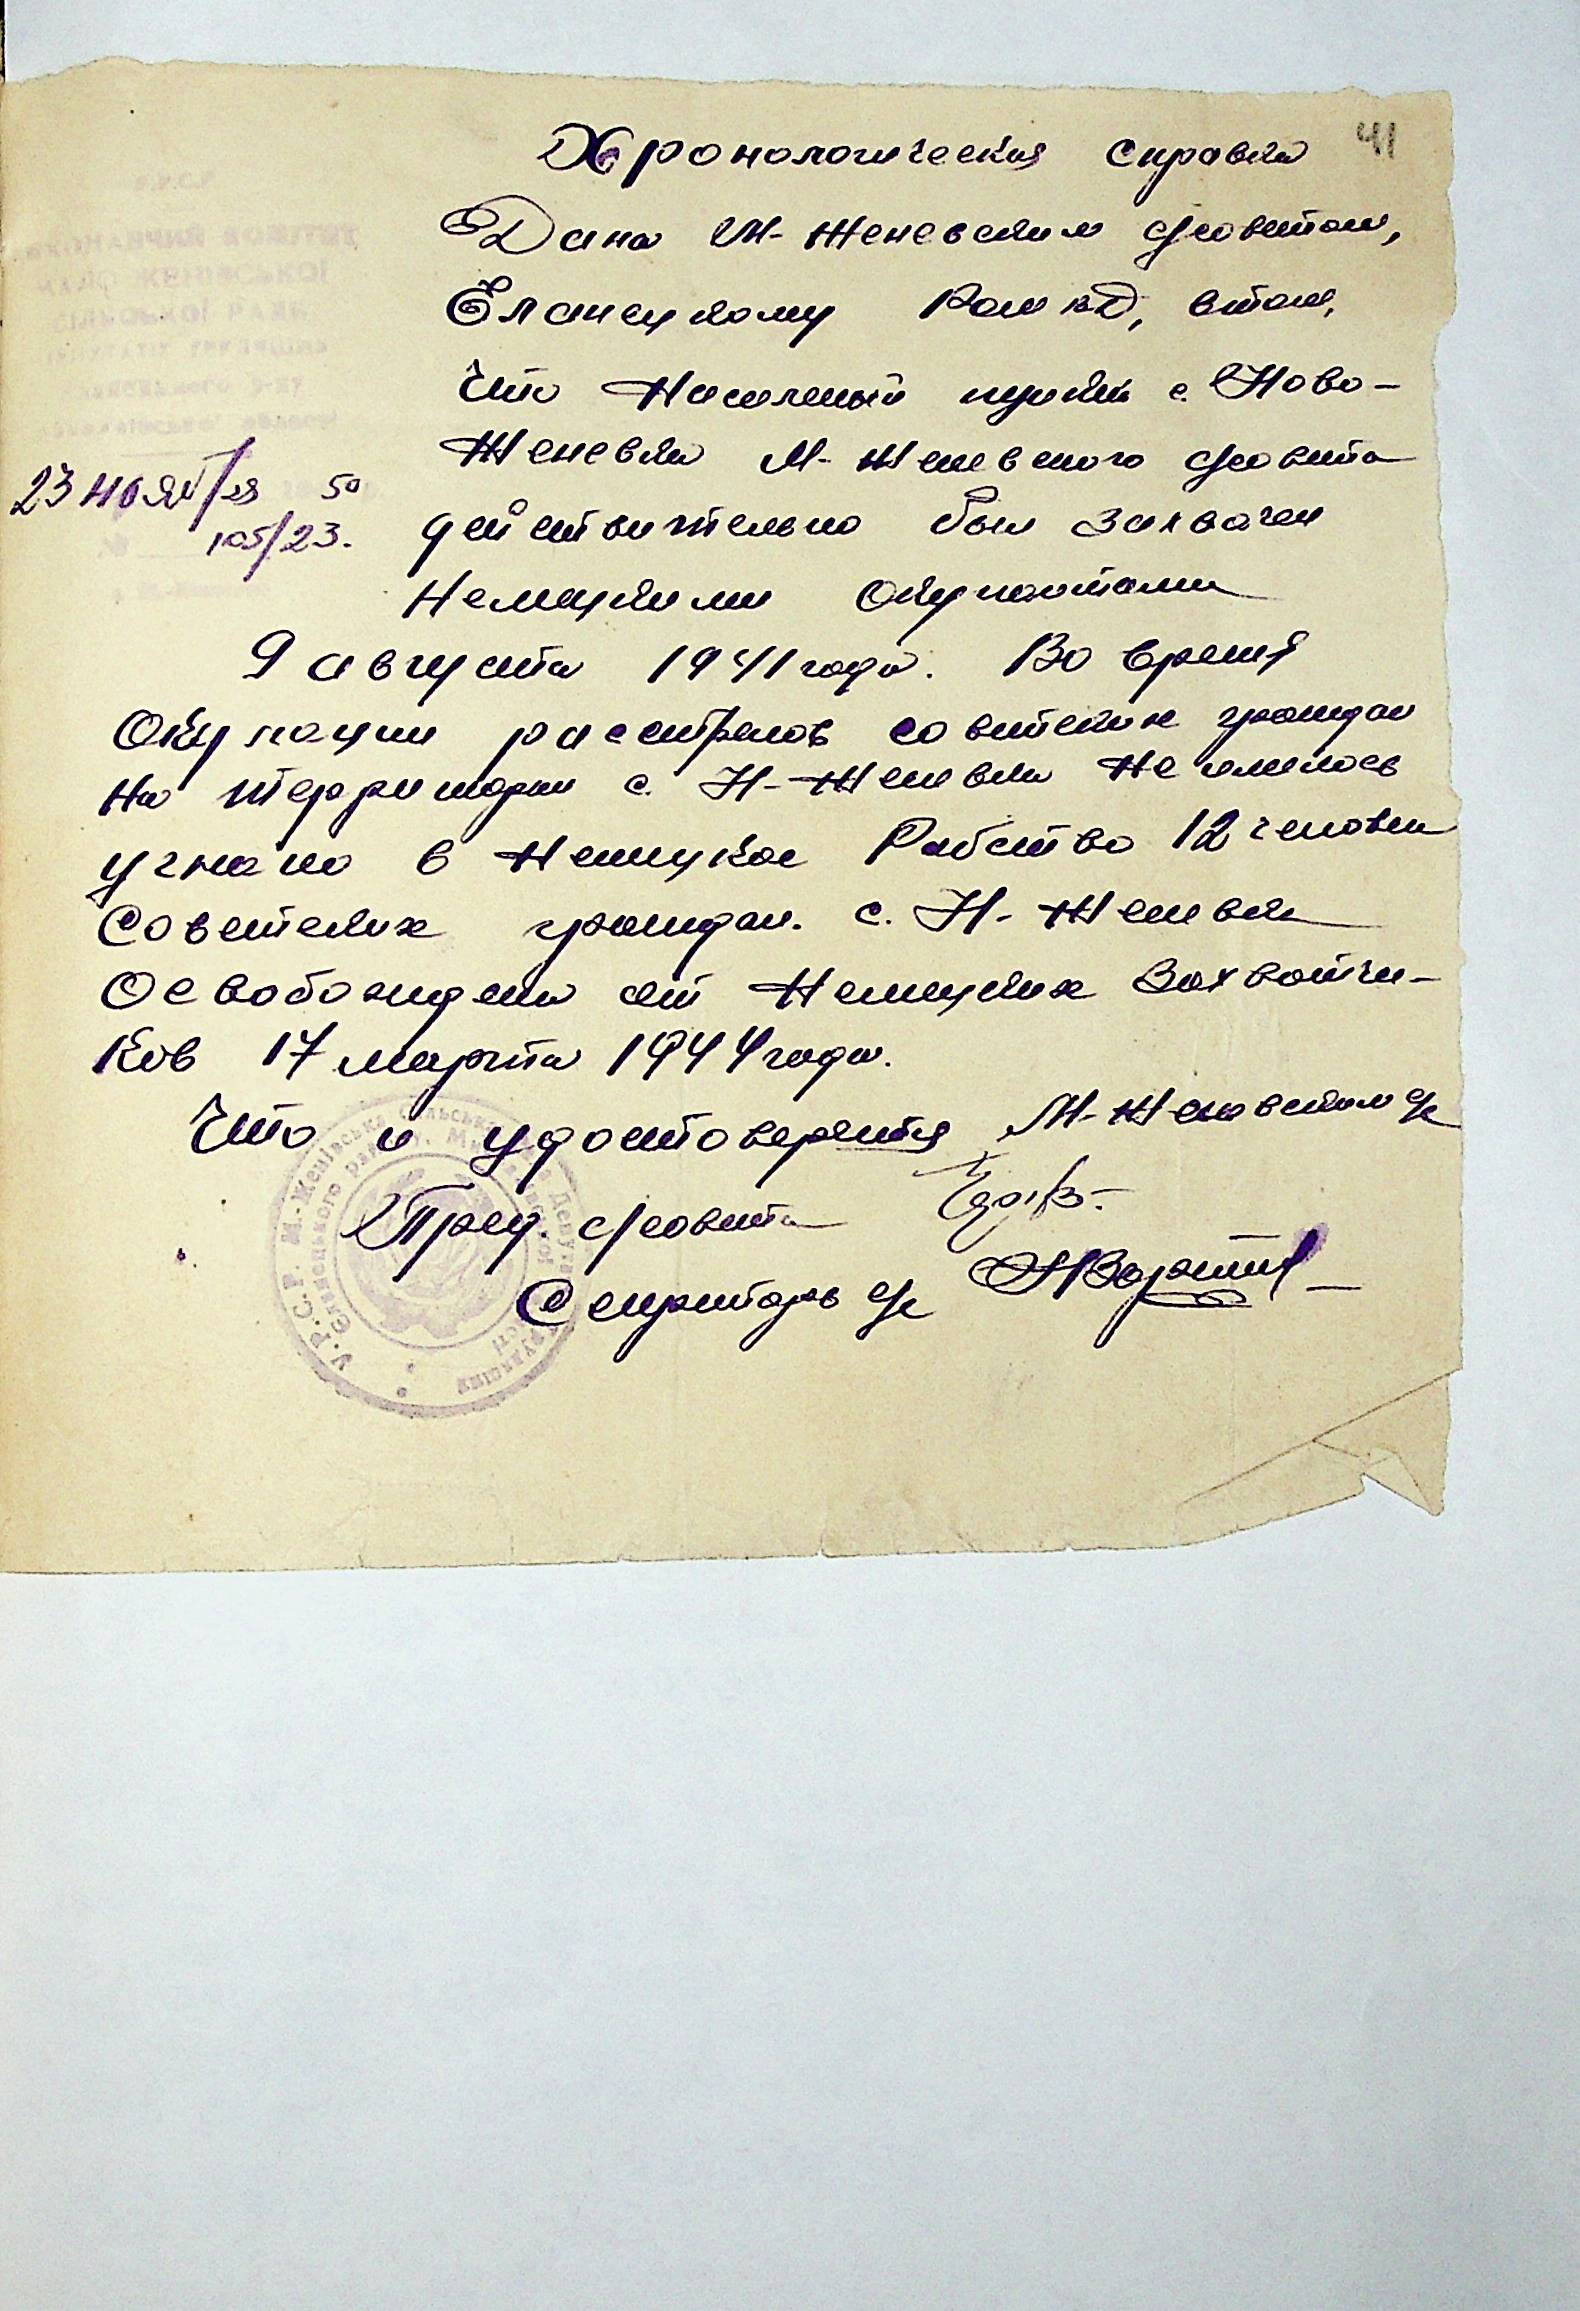 41
Хронологическая справка
Дана М-Женевским с/советом,
Еланецкому Рай КД, втом,
Что Населеный пункт с. Ново-
Женевка М-Женевского с/совета
действительно был захвачен
Немецкими Окупантами
9 августа 1941 года. Во время
Окупации расстрелов советских граждан
На территории с. Н-Женевка Не имелось
угнано в Немецкое Рабство 12 человек
Советских граждан. с. Н-Женевка
Освобождена от Немецких Захватчи-
Ков 17 марта 1944 года.
Что и удостоверяется М-Женевским с/с
Пред. с/совета
Секретарь с/с
У.Р.С.Р.
ВИКОНАВЧИЙ КОМІТЕТ
МАЛО ЖЕНІВСЬКОЇ
СІЛЬСЬКОЇ РАДИ
23 ноября 50
№ 105/23.
У.Р.С.Р. М.-Женівська сільська Рада Депутатів Трудящих